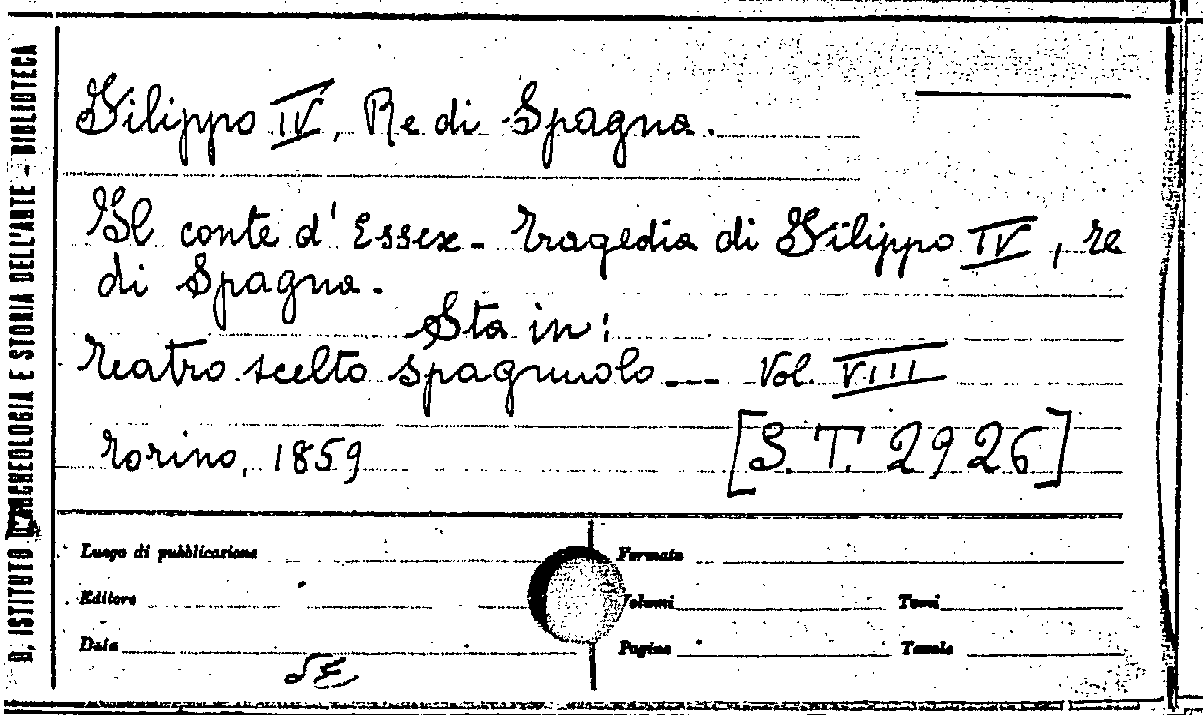 R. ISTITUTO D'ARCHEOLOGIA E STORIA DELL'ARTE - BIBLIOTECA
Filippo IV, Re di Spagna.
Il conte d'Essex - tragedia di Filippo IV, re
di Spagna.
Sta in:
Teatro scelto spagnuolo --- Vol. VIII
Torino, 1859 [S. T. 2926]
Luogo di pubblicazione Formato
Editore Volumi Tomi
Data Pagine Tavole